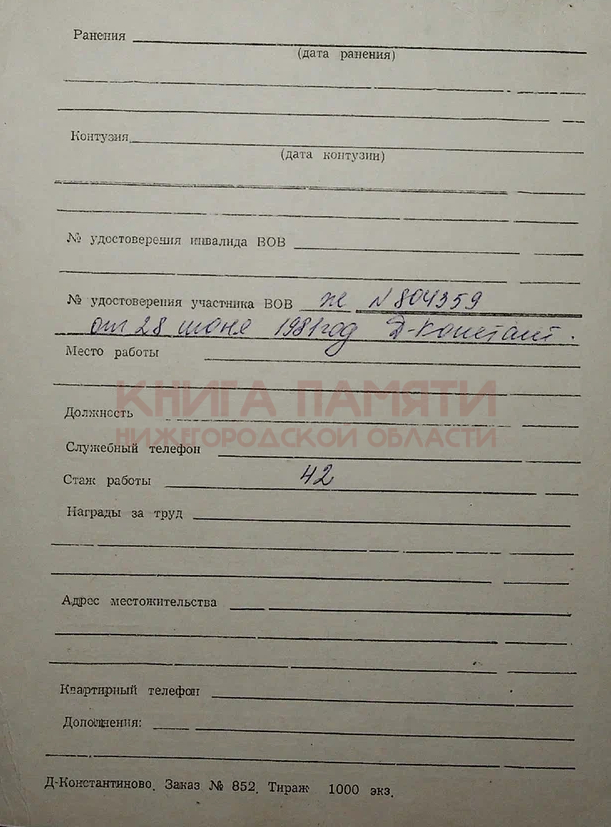 Ранения
(дата ранения)
Контузия
(дата контузии)
№ удостоверения инвалида ВОВ
№ удостоверения участника ВОВ Ж N 804359
от 28 июня 1981 год Д-Констант.
Место работы
КНИГА ПАМЯТИ
Должность
НИЖЕГОРОДСКОЙ ОБЛАСТИ
Служебный телефон
Стаж работы 42
Награды за труд
Адрес местожительства
Квартирный телефон
Дополнения:
Д-Константиново. Заказ № 852. Тираж 1000 экз.